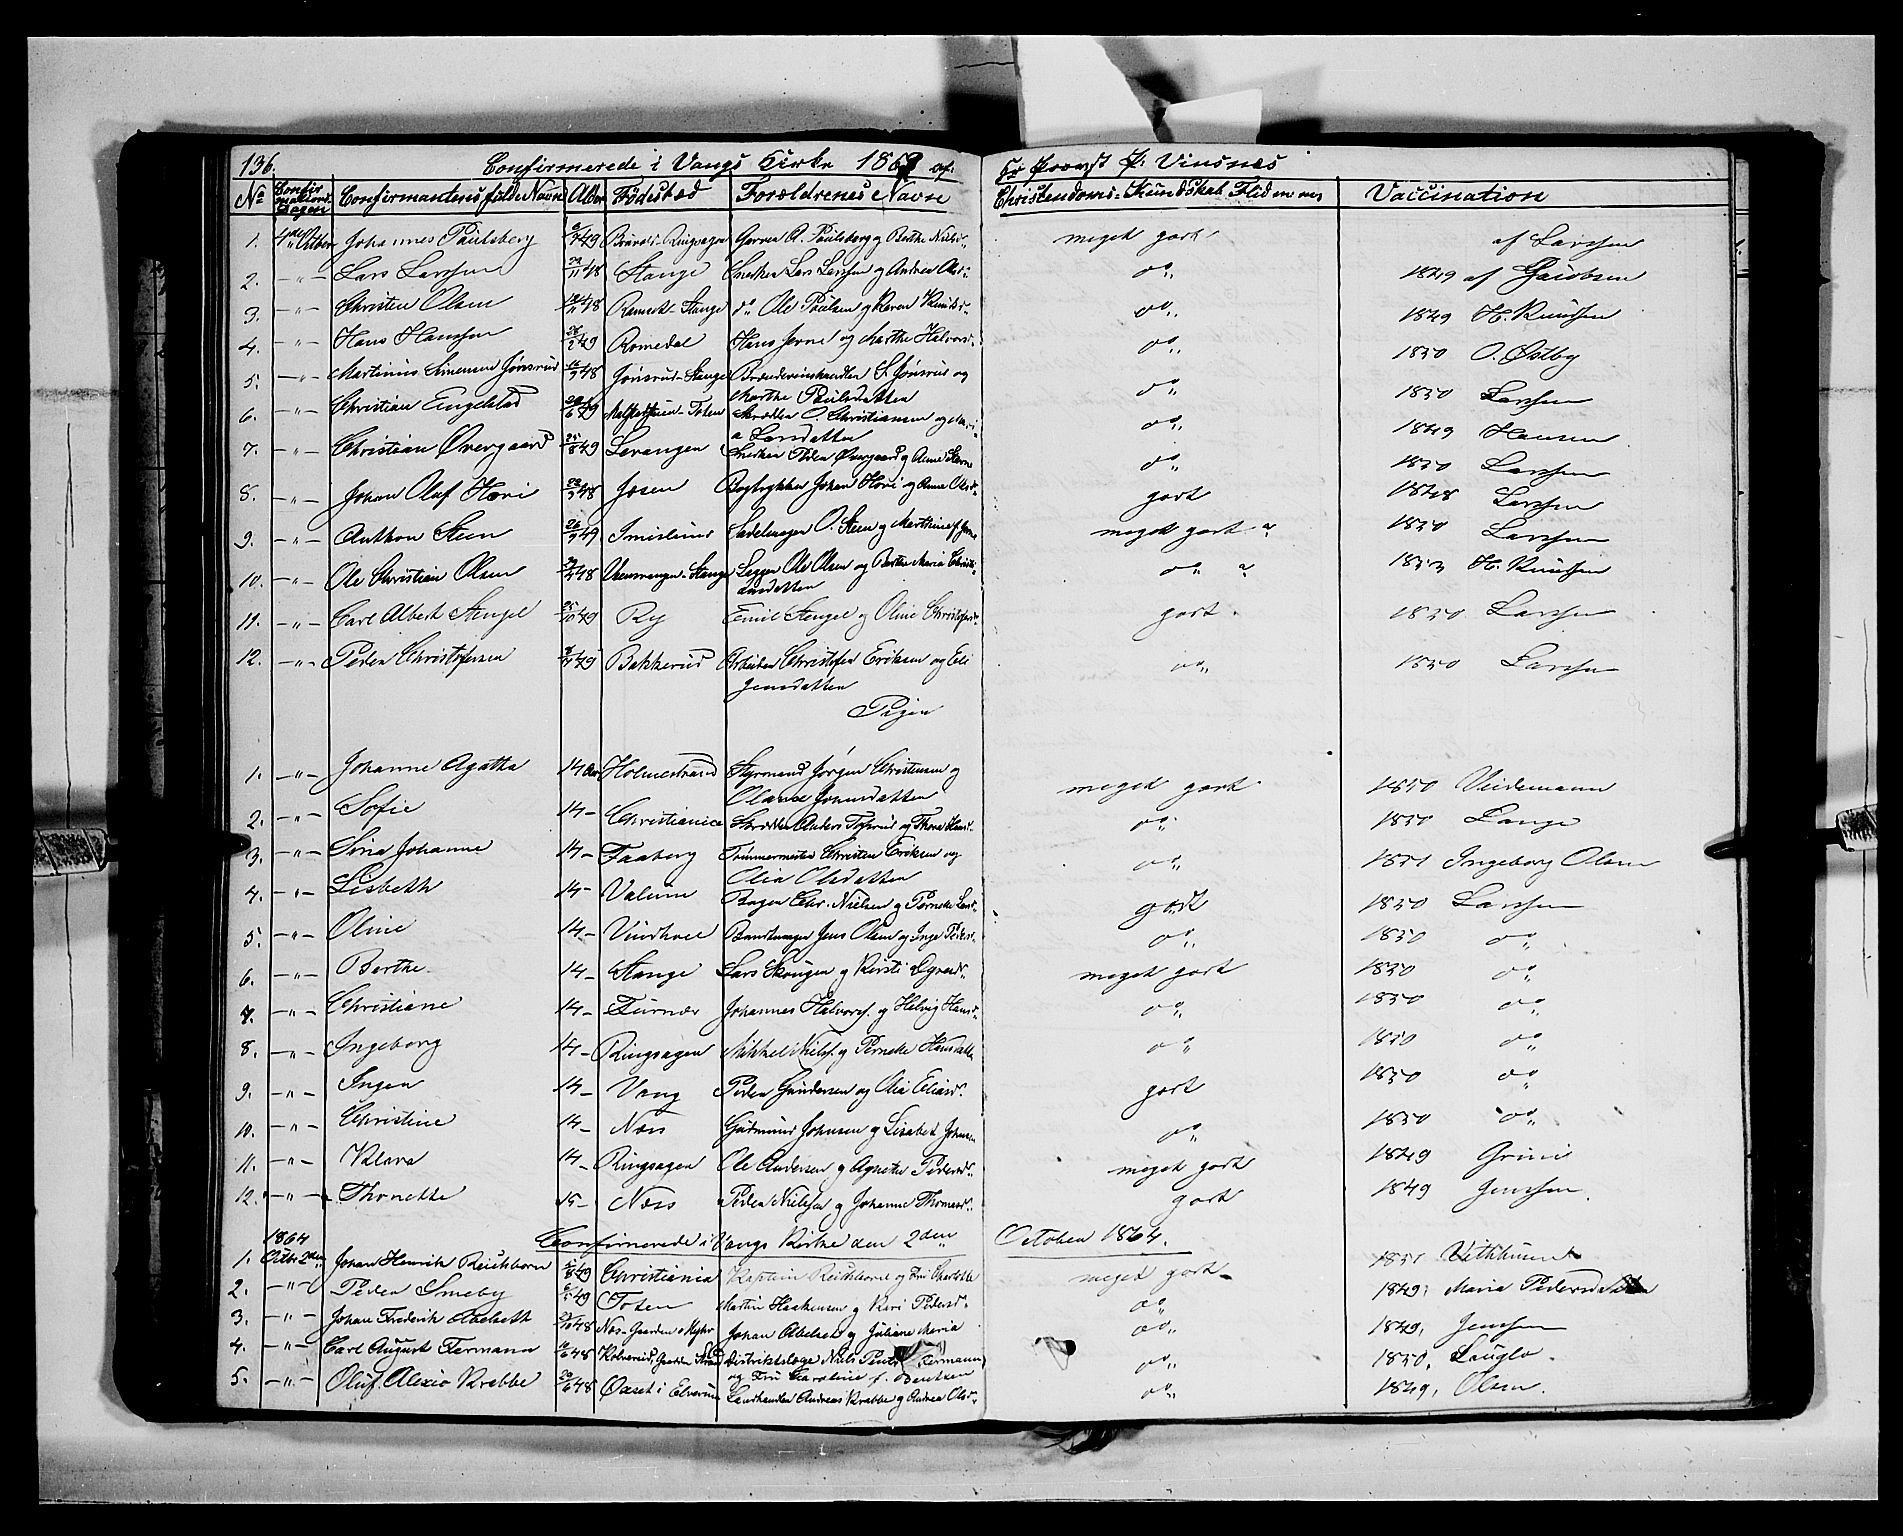 136. Confirmerede i Vangs Kirke 1863 af: Hr Provst P. Vinsnes
No Confirmations Dagen Confirmantens fulde Navn Alder Fødested Forældrenes Navn Christendoms-Kundskab Flid Vaccination
1. 4de Octber Johannes Paulsberg 49 Ringsagen A. Paulsberg og Berthe Nielsd. meget godt af Larssen
2. -"- Lars Larssen /11 48 Stange Snedker Lars Larssen og Andrea Olsd. do 1849 af Jacobsen
3. -"- Christen Olsen 48 Romedal-Stange do Ole Paulsen og Karen Knudsd. do 1849 H. Knudsen
4. -"- Hans Hanssen 49 Romedal Hans Jevne og Marthe Halvorsd. do 1850 O. Østby
5. -"- Martinus Simensen Jønsrud 48 Jønsrud-Stange Brændevinshandler S. Jønsrud og
Marthe Paulsdatter do 1850 Larssen
6. -"- Christian Engelstad 49 Toten Skrædder O. Christiansen og Mari-
a Larsdatter do 1849 Hansen
7. -"- Christian Øvergaard 25/8 49 Levangen Snedker Peder Øvergaard og Anne do 1850 Larssen
8. -"- Johan Oluf Hovi 48 Josen Bogtrykker Johan Hovi og Anne Olsd. godt 1848 Larssen
9. -"- Anthon Steen 26/9 49 Imislund Sadelmager O. Steen og Marthine meget godt 1850 Larssen
10. -"- Ole Christian Olsen 48 -Stange Lægger Ole Olsen og Berthe Maria Christi-
ansdatter do 1853 H. Knudsen
11. -"- Carl Albert Stengel 25/10 49 Ry Emil Stengel og Oline Christofersd. godt 1850 Larssen
12. -"- Peder Christofersen 49 Bakkerud Arbeider Christofer Eriksen og Eli
Jensdatter do 1850 Larssen
Piger
1. -"- Johanne Agatha 14 Aar Holmestrand Styrmand Jørgen Christensen og
Olave Jonsdatter meget godt 1850 Veidemann
2. -"- Sofie 14- Christiania Skrædder Anders Tofsrud og Thora Hansd. do 1850 Lange
3. -"- Sina Johanne 14- Faaberg Tømmermester Christen Eriksen og
Olia Olsdatter do 1851 Ingeborg Olsen
4. -"- Lisbeth 14- Valum Bager Chr. Nielsen og Pernele Larsd. godt 1850 Larssen
5. -"- Oline 14- Vindhoel Jens Olsen og Inge Pedersd. do 1850 do
6. -"- Berthe 14- Stange Lars Skougen og Kirsti meget godt 1850 do
7. -"- Christiane 14- Furnæs Johannes Halvors. og Helvig Hansd. do 1850 do
8. -"- Ingeborg 14- Ringsagen Mikkel Niels. og Pernele Hansdatter do 1850 do
9. -"- Ingen 14- Vang Peder Gundersen og Olia Eliasd. godt 1850 do
10. -"- Christine 14- Næs Gudmund Johnsen og Lisabet Johnsen do 1850 do
11. -"- Klara 14- Ringsagen Ole Andersen og Agnethe Pedersd. meget godt 1849 Grini
12. -"- Thonette 15- Næs Peder Nielsen og Johanne Thomasd. godt 1849 Jenssen.
1864 Confirmerede i Vangs Kirke den 2den October 1864.
1. Octbr 2den Johan Henrik Reichborn 49 Christiania Kaptein Reichborn og Fru Charlotte meget godt 1851 Vithhunt
2. -"- Peder Smeby 49 Toten Martin Haakensen og Kari Pedersd. do 1849, Maria Pedersdatter
3. -"- Johan Frederik Abelseth /10 48 Næs-Gaarden Myhr Johan Abelseth og Juliane Maria do 1849, Jenssen
4. -"- Carl August Fermann 48 Kolvereid, Gaarden Distriktslæge Niels Fermann
og Fru Caroline f. Bentsen do 1850, Lauglo.
5. -"- Oluf Alexio Krabbe 48 Oset i Elverum Landhandler Andreas Krabbe og Andrea Olsd. do 1849, Olsen.